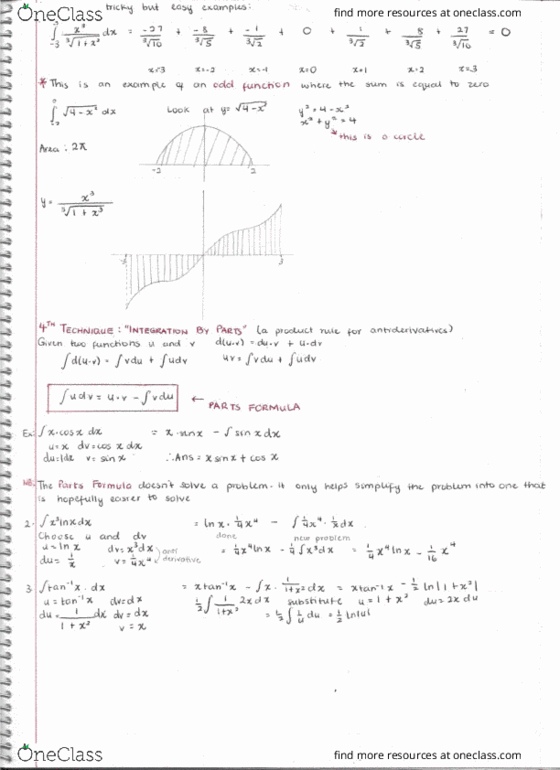 OneClass
find more resources at oneclass.com
tricky but easy examples:
∫ -3 3 x³/∛(1+x²) dx = -27/∛10 + -8/∛5 + -1/∛2 + 0 + 1/∛2 + 8/∛5 + 27/∛10 = 0
x=-3 x=-2 x=-1 x=0 x=1 x=2 x=3
* This is an example of an odd function where the sum is equal to zero
∫ √(4-x²) dx Look at y= √(4-x²) y²=4-x²
x²+y²=4
*this is a circle
Area: 2π
-2 2
y= x³/∛(1+x²)
3
4TH TECHNIQUE: "INTEGRATION BY PARTS" (a product rule for antiderivatives)
Given two functions u and v d(u·v) = du·v + u·dv
∫d(u·v) = ∫vdu + ∫udv uv = ∫vdu + ∫udv
∫udv = u·v - ∫vdu ← PARTS FORMULA
Ex: ∫x·cosx dx = x·sinx - ∫sinx dx
u=x dv=cosx dx
du=1dx v=sinx ∴Ans = x sinx + cosx
NB: The Parts Formula doesn't solve a problem. It only helps simplify the problem into one that
is hopefully easier to solve
2. ∫x³lnxdx = lnx·¼x⁴ - ∫¼x⁴·1/x dx
Choose u and dv done new problem
u=lnx dv=x³dx anti = ¼x⁴lnx - ¼∫x³dx = ¼x⁴lnx - 1/16 x⁴
du=1/x v=¼x⁴ derivative
3 ∫tan⁻¹x·dx = xtan⁻¹x - ∫x·1/(1+x²)dx = xtan⁻¹x - ½ln|1+x²|
u=tan⁻¹x dv=dx ½∫1/(1+x²) 2xdx substitute u=1+x² du=2x du
du=1/(1+x²) dx dv=dx = ½∫1/u du = ½ln|u|
v=x
OneClass
find more resources at oneclass.com